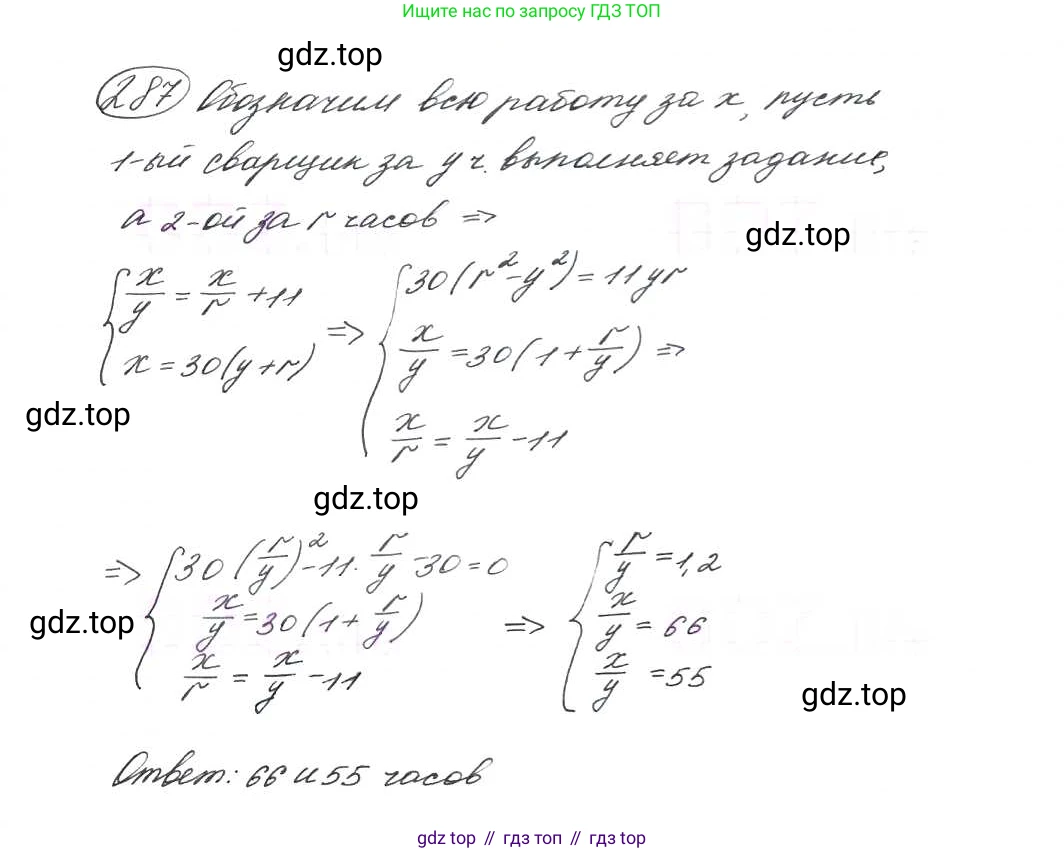 Ищите нас по запросу ГДЗ ТОП
gdz.top
287 Обозначим всю работу за x, пусть
1-ый сварщик за y ч. выполняет задание,
а 2-ой за r часов =>
gdz.top
{ x/y = x/r + 11
x = 30(y+r)
=> { 30(r²-y²) = 11yr
x/y = 30(1 + r/y) =>
x/r = x/y - 11
gdz.top
gdz.top
=> { 30(r/y)² - 11·r/y - 30 = 0
x/y = 30(1 + r/y)
x/r = x/y - 11
gdz.top
=> { r/y = 1,2
x/y = 66
x/y = 55
gdz.top
Ответ: 66 и 55 часов
gdz top // гдз топ // gdz top